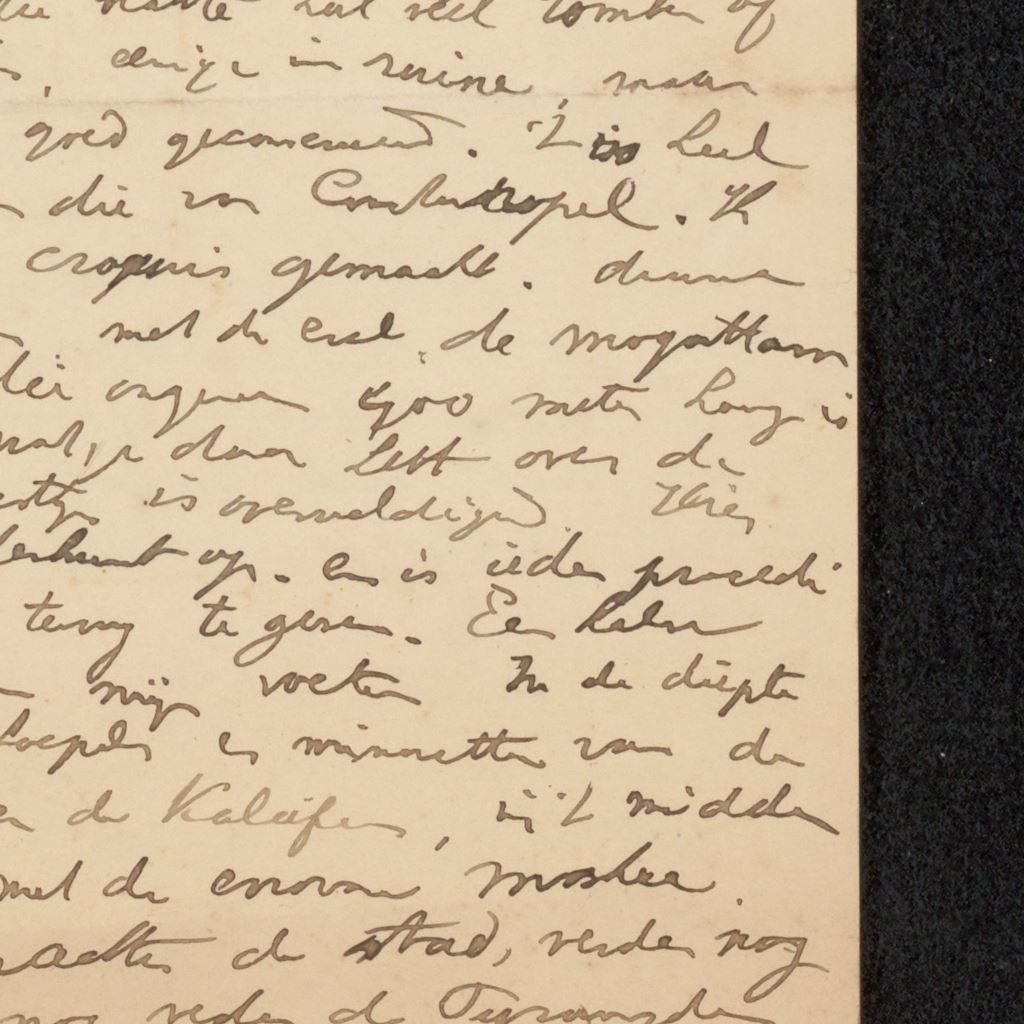 heel veel tomben of
, eenige in ruine, maar
goed geconserveerd. 't is heel
die van Constantinopel. Ik
croquis gemaakt. daarna
met de ezel de mogattam
die ongeveer 900 meter hoog is
daar hebt over de
is overweldigend. Hier
op. en is ieder procédé
terug te geven. Een kalme
mijn voeten In de diepte
koepels en minaretten van de
de Kaliefen, in 't midden
met de enorme moskee
achter de stad, verder nog
nog verder de Pyramiden